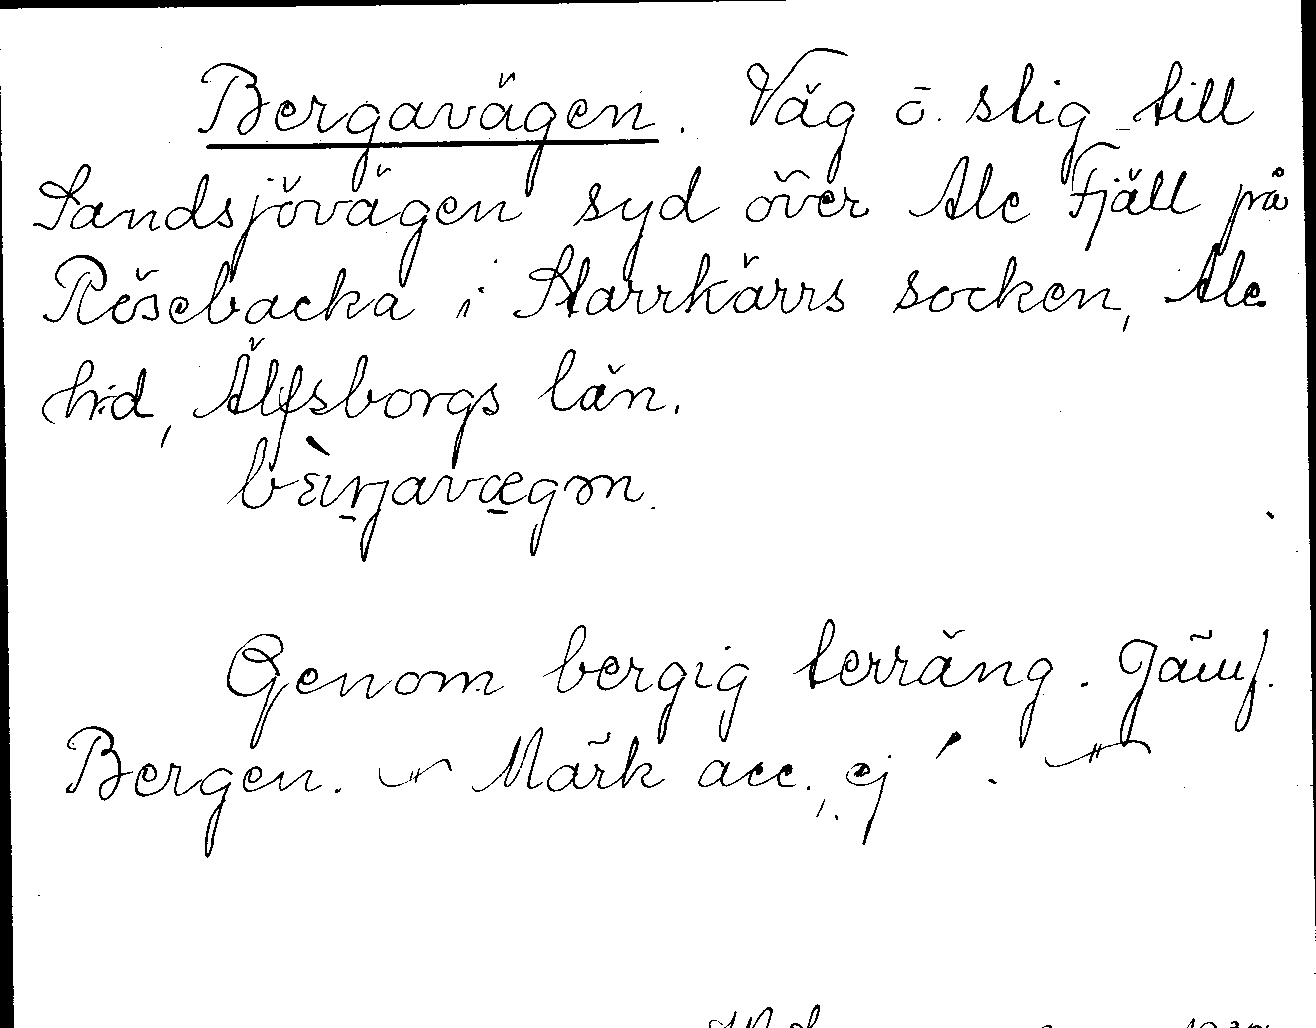 Bergavägen. Väg o. stig till
Sandsjövägen syd över Ale Fjäll på
Rösebacka i Starrkärrs socken, Ale
h:d, Älfsborgs län.
Genom bergig terräng. Jämf.
Bergen. Märk acc., ej ´.